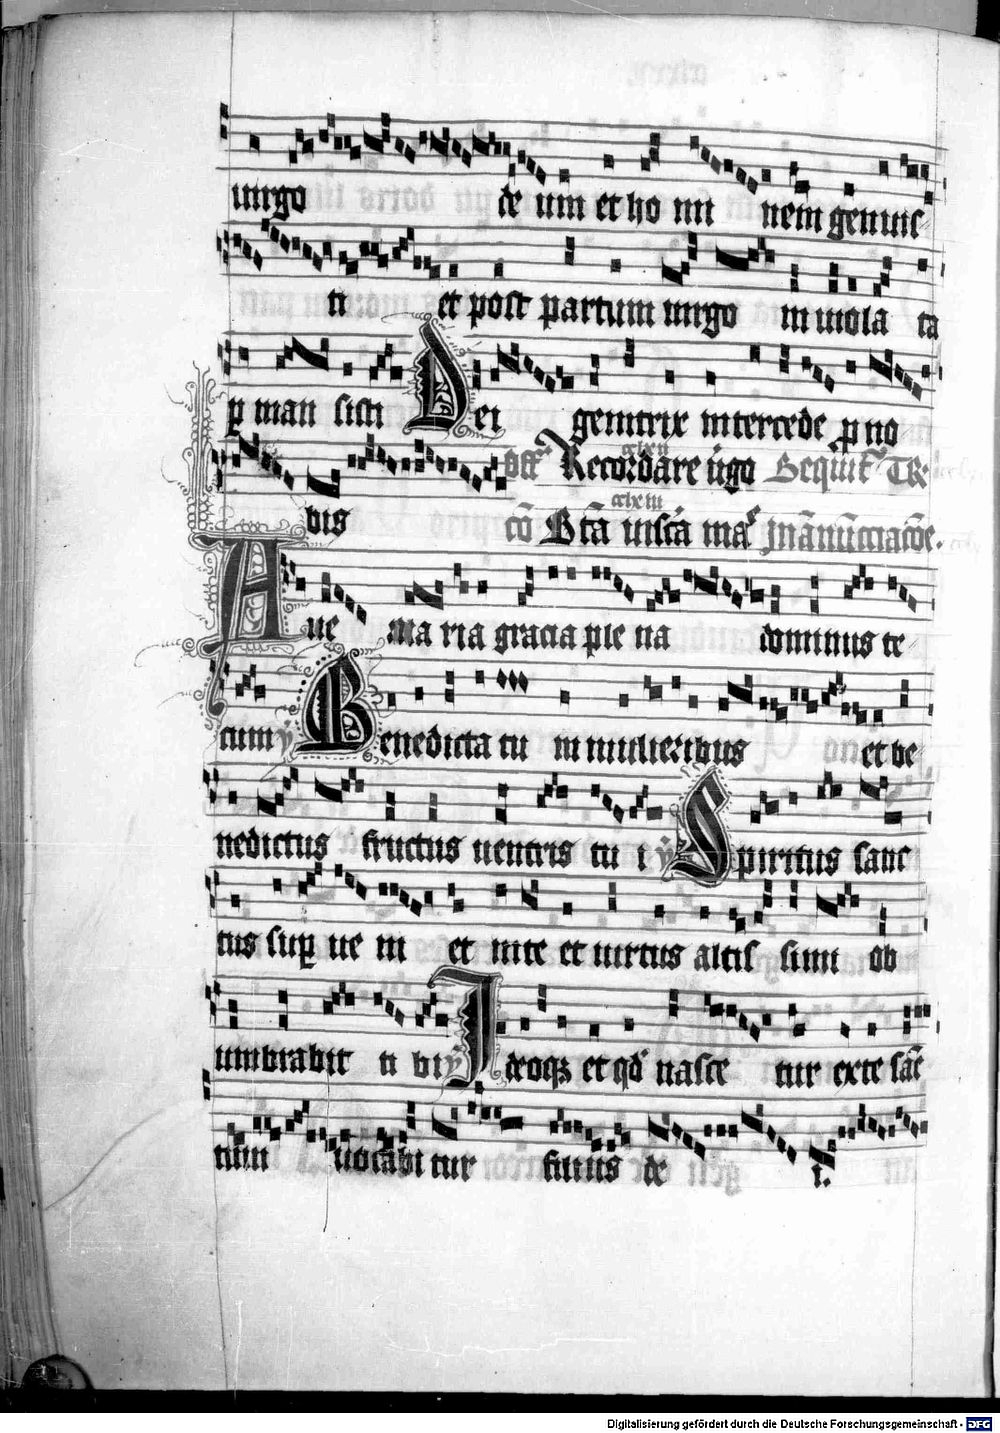 uirgo de um et ho mi nem genuis
ti et post partum uirgo in uiola ta
p man sisti Dei genitrix intercede p no
Recordare ugo Sequit TR
bis co Bta uisita ma In anucciacoe.
Aue ma ria gracia ple na dominus te
cum Benedicta tu in mulieribus et be
nedictus fructus uentris tu i Spiritus sanc
tus sup ue ni et inte et uirtus altis simi ob
umbrabit ti bi Ideoq et qd nasce tur exte sac
tum uocabi tur filius de i.
Digitalisierung gefördert durch die Deutsche Forschungsgemeinschaft - DFG